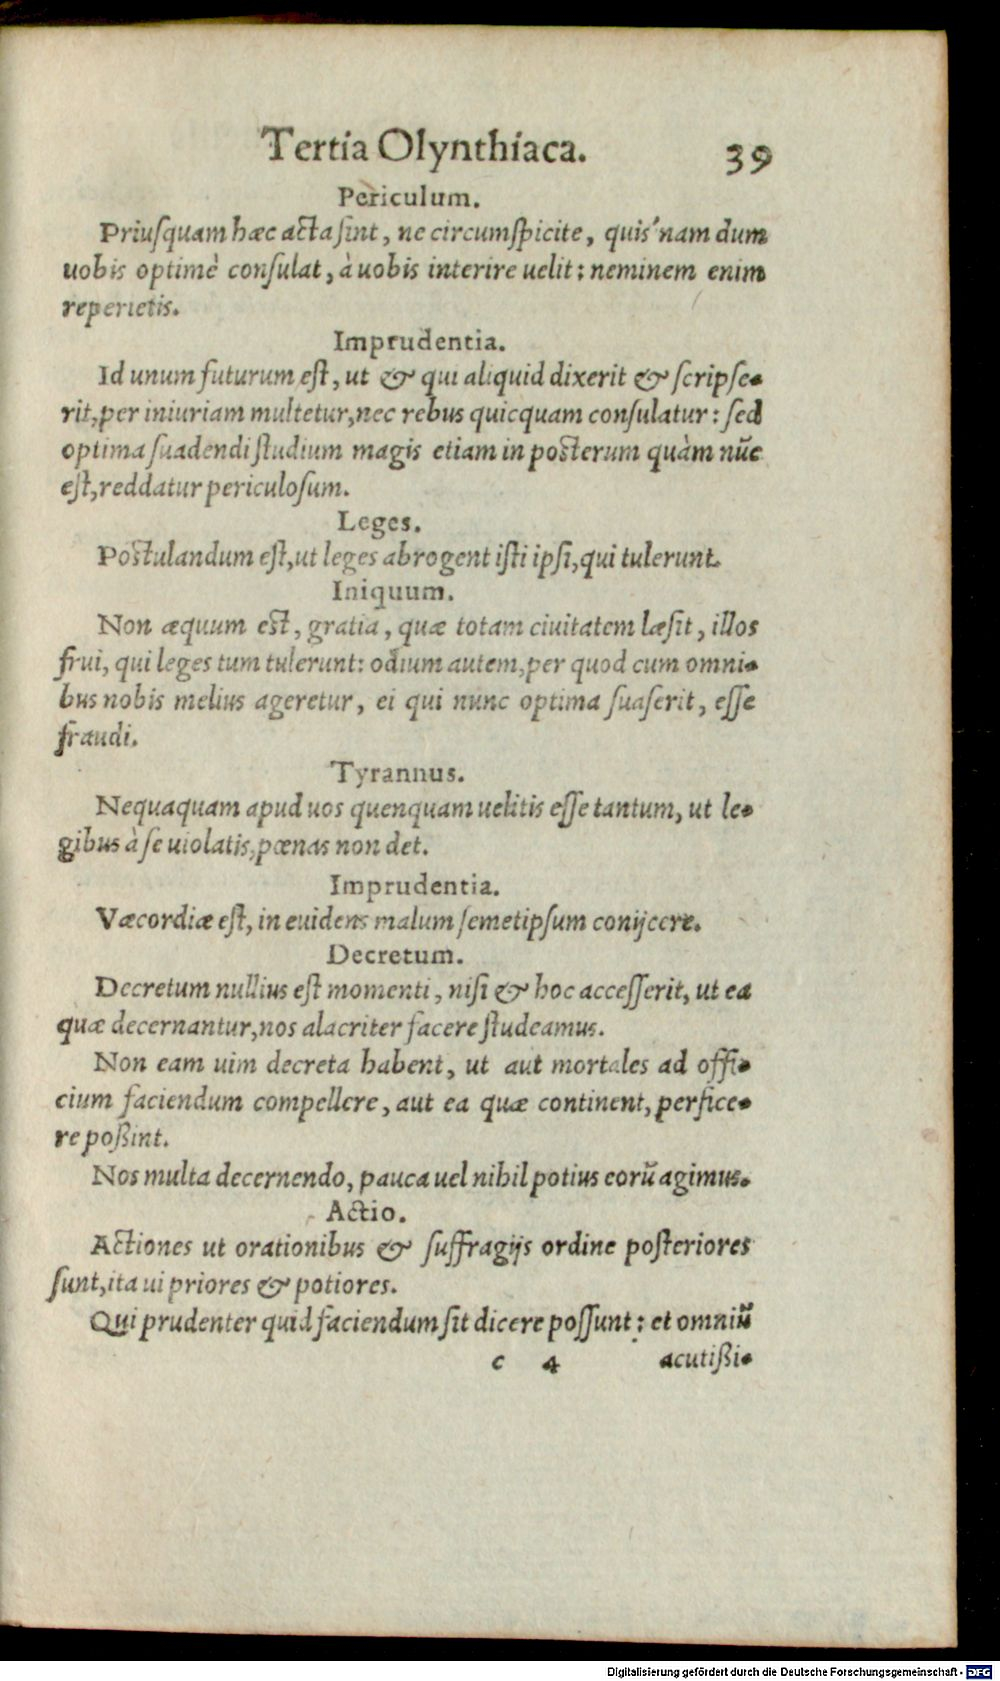 Tertia Olynthiaca. 39
Periculum.
Priuſquam hæc acta ſint, ne circumſpicite, quis'nam dum
uobis optimè conſulat, à uobis interire uelit: neminem enim
reperietis.
Imprudentia.
Id unum futurum eſt, ut & qui aliquid dixerit & ſcripſe-
rit, per iniuriam multetur, nec rebus quicquam conſulatur: ſed
optima ſuadendi ſtudium magis etiam in poſterum quàm nūc
eſt, reddatur periculoſum.
Leges.
Poſtulandum eſt, ut leges abrogent iſti ipſi, qui tulerunt.
Iniquum.
Non æquum eſt, gratia, quæ totam ciuitatem læſit, illos
frui, qui leges tum tulerunt: odium autem, per quod cum omni-
bus nobis melius ageretur, ei qui nunc optima ſuaſerit, eſſe
fraudi.
Tyrannus.
Nequaquam apud uos quenquam uelitis eſſe tantum, ut le-
gibus à ſe uiolatis, pœnas non det.
Imprudentia.
Væcordiæ eſt, in euidens malum ſemetipſum conijcere.
Decretum.
Decretum nullius eſt momenti, niſi & hoc acceſſerit, ut ea
quæ decernantur, nos alacriter facere ſtudeamus.
Non eam uim decreta habent, ut aut mortales ad offi-
cium faciendum compellere, aut ea quæ continent, perfice-
re poßint.
Nos multa decernendo, pauca uel nihil potius eorū agimus.
Actio.
Actiones ut orationibus & ſuffragijs ordine poſteriores
ſunt, ita ui priores & potiores.
Qui prudenter quid faciendum ſit dicere poſſunt: et omniū
c 4 acutißi-
Digitalisierung gefördert durch die Deutsche Forschungsgemeinschaft - DFG